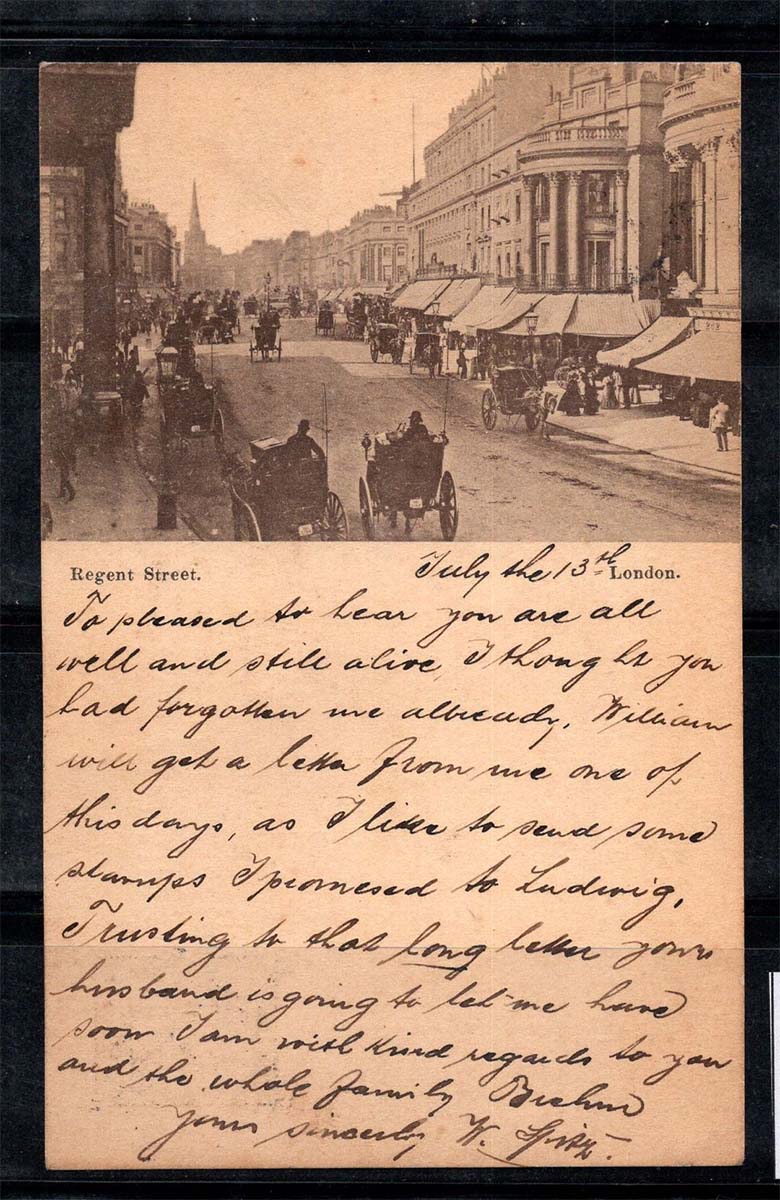 Regent Street.
July the 13th
London.
To pleased to hear you are all
well and still alive, I thought you
had forgotten me allready, William
will get a letter from me one of
this days, as I like to send some
stamps I promesed to Ludwig,
Trusting to that long letter your
husband is going to let me have
soon I am with kind regards to you
and the whole family
yours sincerly W. Spitz.